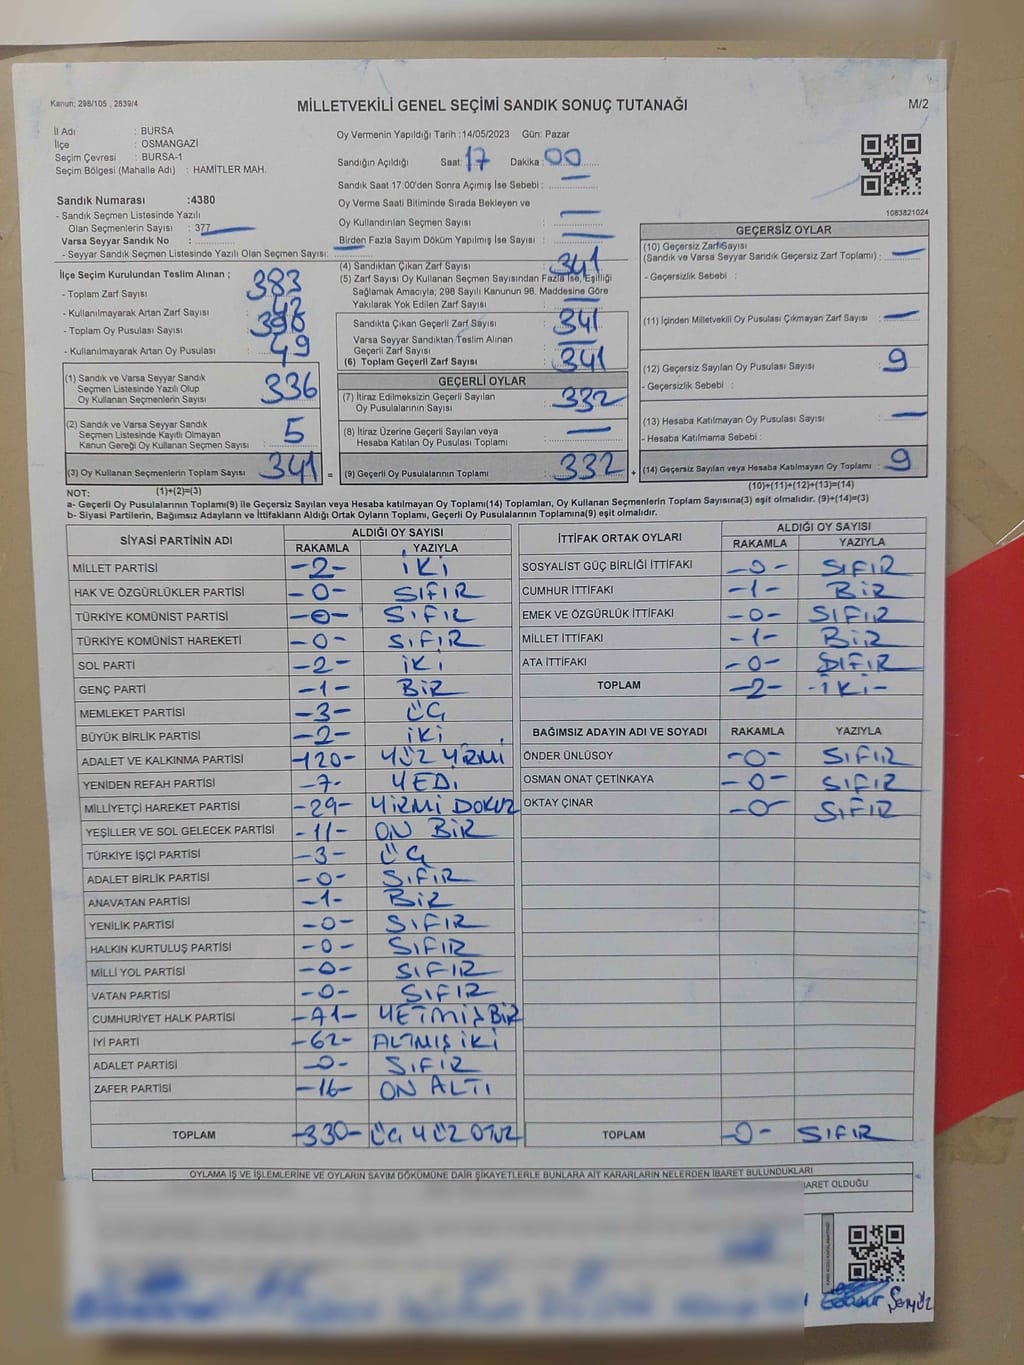 Kanun; 298/105 , 2839/4
MİLLETVEKİLİ GENEL SEÇİMİ SANDIK SONUÇ TUTANAĞI
M/2
İl Adı : BURSA
İlçe : OSMANGAZİ
Seçim Çevresi : BURSA-1
Seçim Bölgesi (Mahalle Adı) : HAMİTLER MAH.
Oy Vermenin Yapıldığı Tarih :14/05/2023 Gün: Pazar
Sandığın Açıldığı Saat: 17 Dakika : 00
Sandık Saat 17:00'den Sonra Açımış İse Sebebi :
Oy Verme Saati Bitiminde Sırada Bekleyen ve
Oy Kullandırılan Seçmen Sayısı : —
Birden Fazla Sayım Döküm Yapılmış İse Sayısı : —
1083821024
Sandık Numarası :4380
- Sandık Seçmen Listesinde Yazılı
Olan Seçmenlerin Sayısı : 377
Varsa Seyyar Sandık No :
- Seyyar Sandık Seçmen Listesinde Yazılı Olan Seçmen Sayısı:
İlçe Seçim Kurulundan Teslim Alınan ;
- Toplam Zarf Sayısı : 383
- Kullanılmayarak Artan Zarf Sayısı : 42
- Toplam Oy Pusulası Sayısı : 398
- Kullanılmayarak Artan Oy Pusulası : 49
(1) Sandık ve Varsa Seyyar Sandık
Seçmen Listesinde Yazılı Olup
Oy Kullanan Seçmenlerin Sayısı : 336
(2) Sandık ve Varsa Seyyar Sandık
Seçmen Listesinde Kayıtlı Olmayan
Kanun Gereği Oy Kullanan Seçmen Sayısı : 5
(3) Oy Kullanan Seçmenlerin Toplam Sayısı : 341 =
(4) Sandıktan Çıkan Zarf Sayısı : 341
(5) Zarf Sayısı Oy Kullanan Seçmen Sayısından Fazla İse, Eşitliği
Sağlamak Amacıyla; 298 Sayılı Kanunun 98. Maddesine Göre
Yakılarak Yok Edilen Zarf Sayısı : —
Sandıkta Çıkan Geçerli Zarf Sayısı : 341
Varsa Seyyar Sandıktan Teslim Alınan
Geçerli Zarf Sayısı : —
(6) Toplam Geçerli Zarf Sayısı : 341
GEÇERLİ OYLAR
(7) İtiraz Edilmeksizin Geçerli Sayılan
Oy Pusulalarının Sayısı : 332
(8) İtiraz Üzerine Geçerli Sayılan veya
Hesaba Katılan Oy Pusulası Toplamı : —
(9) Geçerli Oy Pusulalarının Toplamı : 332 +
GEÇERSİZ OYLAR
(10) Geçersiz Zarf Sayısı
(Sandık ve Varsa Seyyar Sandık Geçersiz Zarf Toplamı) : —
- Geçersizlik Sebebi :
(11) İçinden Milletvekili Oy Pusulası Çıkmayan Zarf Sayısı : —
(12) Geçersiz Sayılan Oy Pusulası Sayısı : 9
- Geçersizlik Sebebi :
(13) Hesaba Katılmayan Oy Pusulası Sayısı : —
- Hesaba Katılmama Sebebi :
(14) Geçersiz Sayılan veya Hesaba Katılmayan Oy Toplamı : 9
NOT: (1)+(2)=(3)
(10)+(11)+(12)+(13)=(14)
a- Geçerli Oy Pusulalarının Toplamı(9) ile Geçersiz Sayılan veya Hesaba katılmayan Oy Toplamı(14) Toplamları, Oy Kullanan Seçmenlerin Toplam Sayısına(3) eşit olmalıdır. (9)+(14)=(3)
b- Siyasi Partilerin, Bağımsız Adayların ve İttifakların Aldığı Ortak Oyların Toplamı, Geçerli Oy Pusulalarının Toplamına(9) eşit olmalıdır.
SİYASİ PARTİNİN ADI ALDIĞI OY SAYISI
RAKAMLA YAZIYLA
MİLLET PARTİSİ -2- İKİ
HAK VE ÖZGÜRLÜKLER PARTİSİ -0- SIFIR
TÜRKİYE KOMÜNİST PARTİSİ -0- SIFIR
TÜRKİYE KOMÜNİST HAREKETİ -0- SIFIR
SOL PARTİ -2- İKİ
GENÇ PARTİ -1- BİR
MEMLEKET PARTİSİ -3- ÜÇ
BÜYÜK BİRLİK PARTİSİ -2- İKİ
ADALET VE KALKINMA PARTİSİ -120- YÜZ YİRMİ
YENİDEN REFAH PARTİSİ -7- YEDİ
MİLLİYETÇİ HAREKET PARTİSİ -29- YİRMİ DOKUZ
YEŞİLLER VE SOL GELECEK PARTİSİ -11- ON BİR
TÜRKİYE İŞÇİ PARTİSİ -3- ÜÇ
ADALET BİRLİK PARTİSİ -0- SIFIR
ANAVATAN PARTİSİ -1- BİR
YENİLİK PARTİSİ -0- SIFIR
HALKIN KURTULUŞ PARTİSİ -0- SIFIR
MİLLİ YOL PARTİSİ -0- SIFIR
VATAN PARTİSİ -0- SIFIR
CUMHURİYET HALK PARTİSİ -71- YETMİŞ BİR
İYİ PARTİ -62- ALTMIŞ İKİ
ADALET PARTİSİ -0- SIFIR
ZAFER PARTİSİ -16- ON ALTI
TOPLAM -330- ÜÇ YÜZ OTUZ
İTTİFAK ORTAK OYLARI ALDIĞI OY SAYISI
RAKAMLA YAZIYLA
SOSYALİST GÜÇ BİRLİĞİ İTTİFAKI -0- SIFIR
CUMHUR İTTİFAKI -1- BİR
EMEK VE ÖZGÜRLÜK İTTİFAKI -0- SIFIR
MİLLET İTTİFAKI -1- BİR
ATA İTTİFAKI -0- SIFIR
TOPLAM -2- -İKİ-
BAĞIMSIZ ADAYIN ADI VE SOYADI RAKAMLA YAZIYLA
ÖNDER ÜNLÜSOY -0- SIFIR
OSMAN ONAT ÇETİNKAYA -0- SIFIR
OKTAY ÇINAR -0- SIFIR
TOPLAM -0- SIFIR
OYLAMA İŞ VE İŞLEMLERİNE VE OYLARIN SAYIM DÖKÜMÜNE DAİR ŞİKAYETLERLE BUNLARA AİT KARARLARIN NELERDEN İBARET BULUNDUKLARI
BARET OLDUĞU